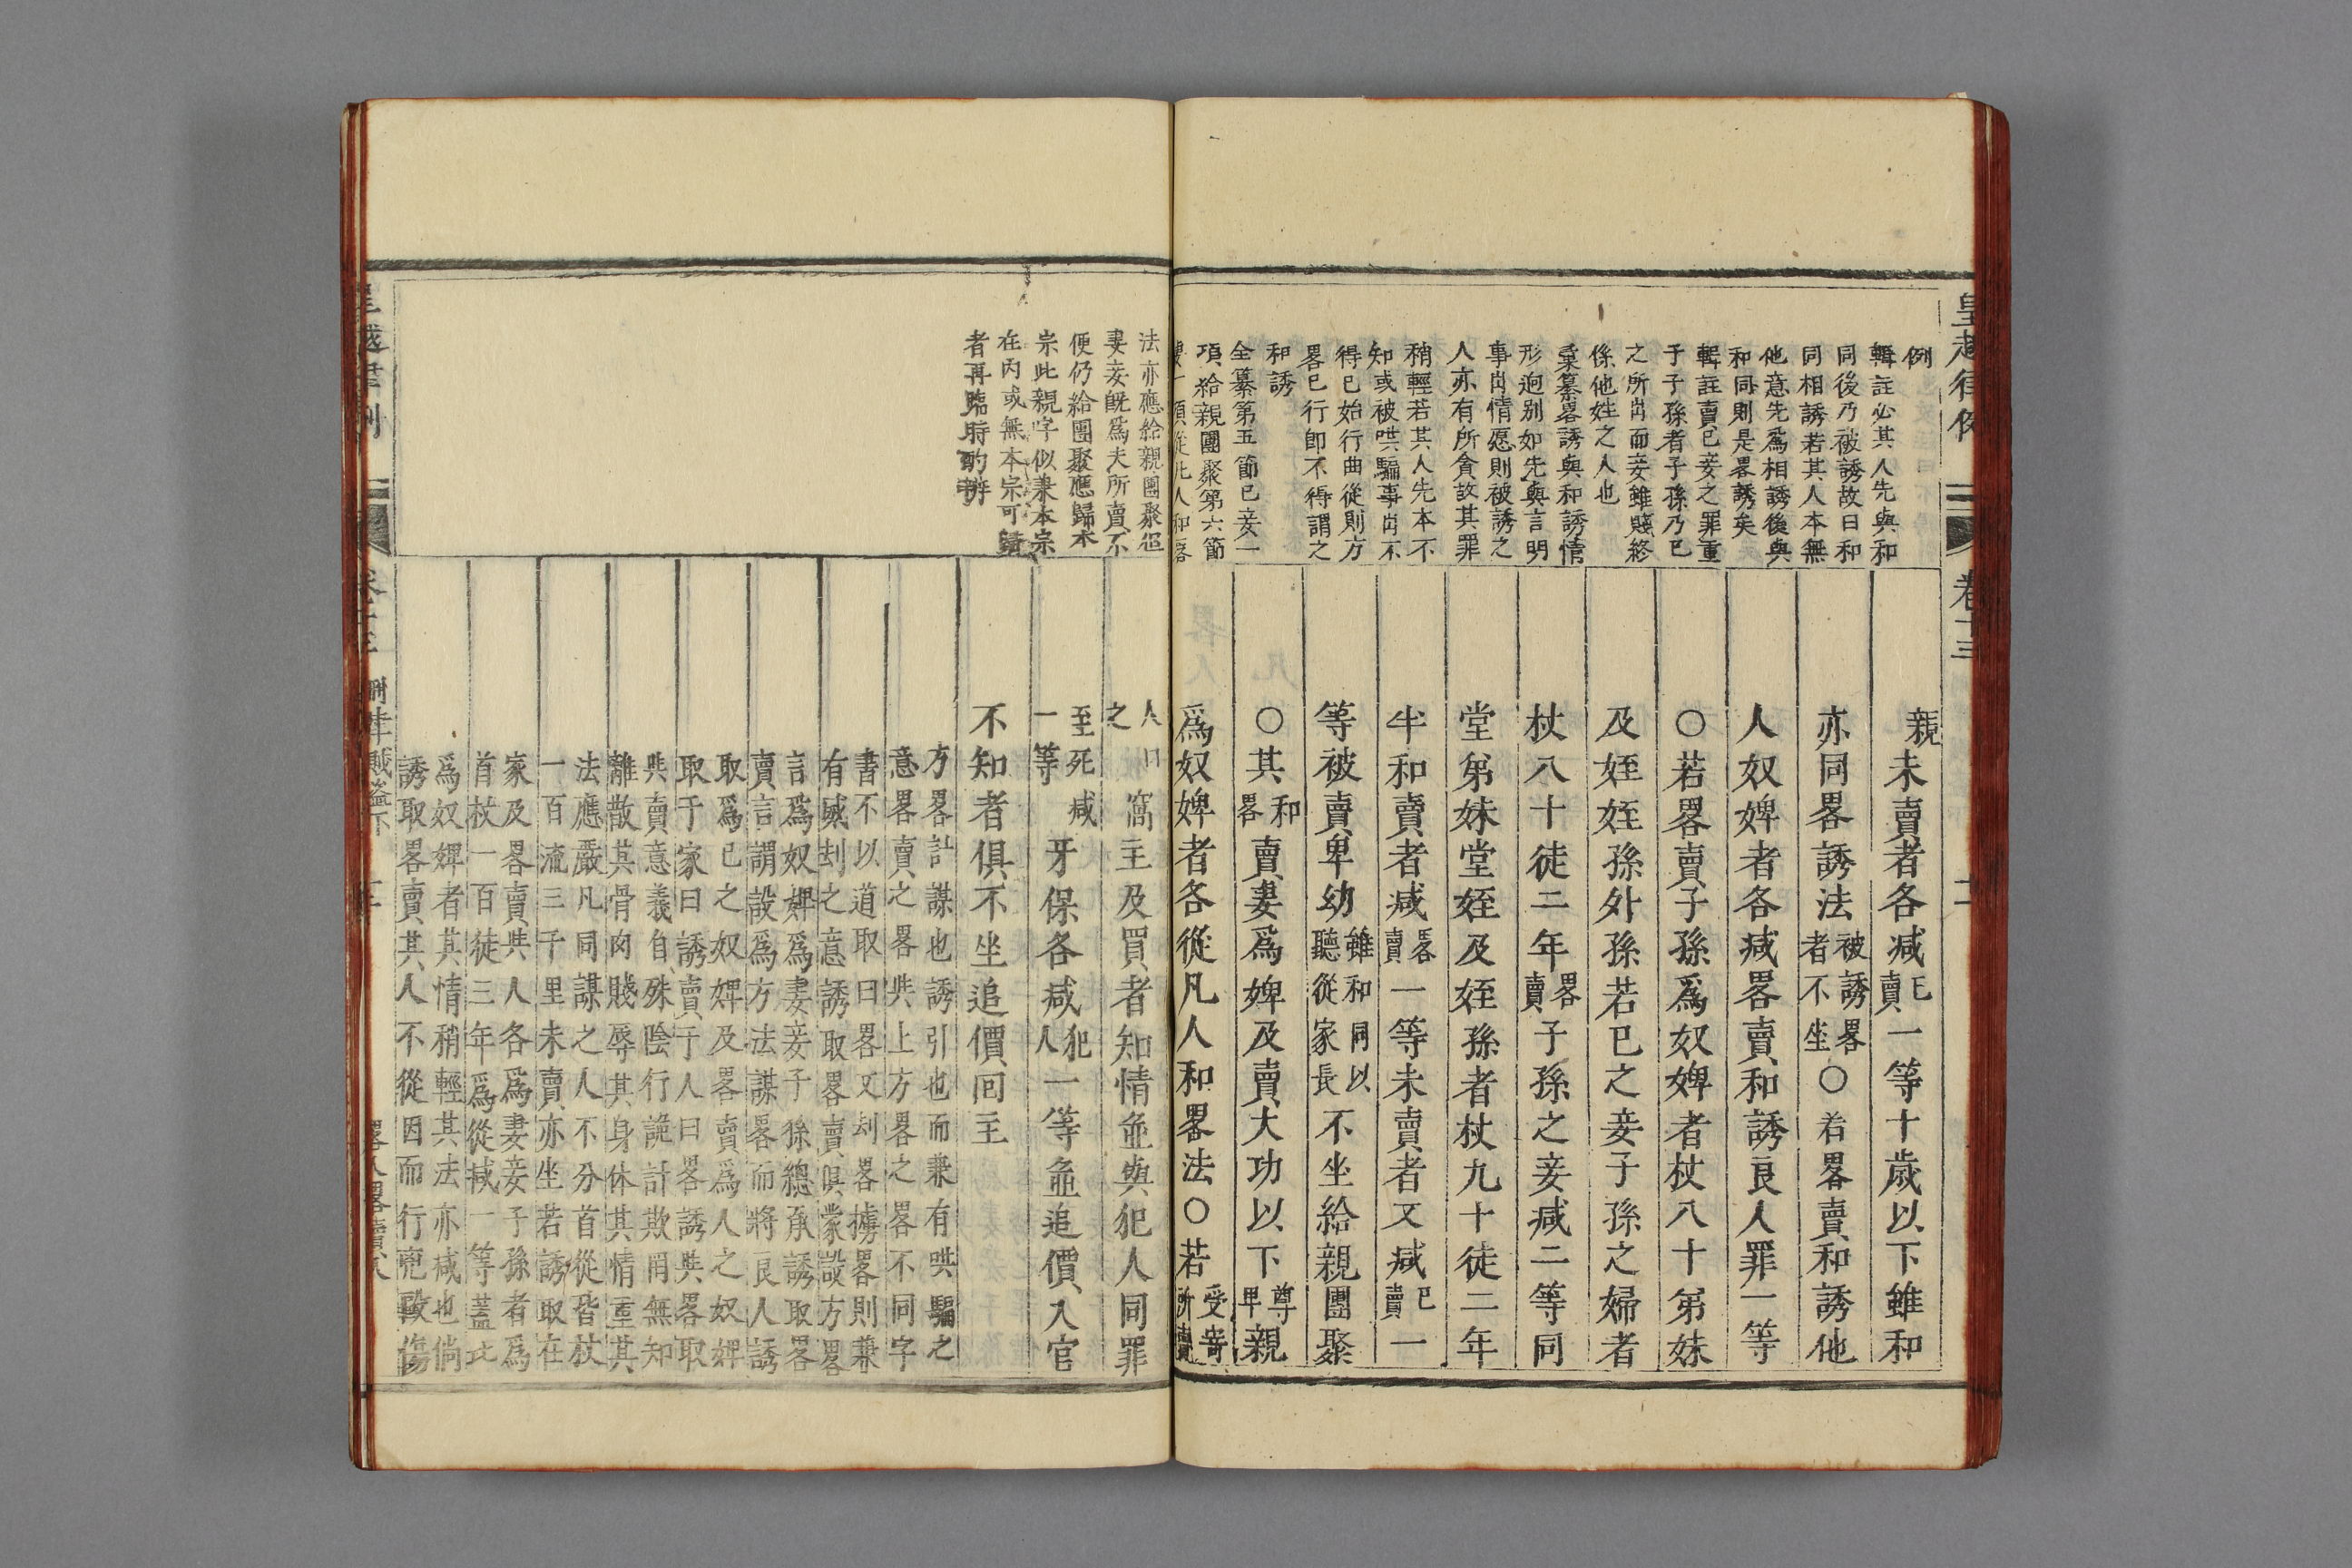 皇越律例
卷十三
例
輯註必其人先與和
同後乃被誘故曰和
同相誘若其人本無
他意先爲相誘後與
和同則是畧誘矣
輯註賣已妾之罪重
于子孫者子孫乃已
之所出而妾雖賤終
係他姓之人也
彙纂畧誘與和誘情
形逈别如先與言明
事出情愿則被誘之
人亦有所貪故其罪
稍輕若其人先本不
知或被哄騙事出不
得已始行曲從則方
畧已行即不得謂之
和誘
全纂第五節已妾一
項給親團聚第六節
妻一項從凡人和畧
親未賣者各减已賣一等十歲以下雖和
亦同畧誘法被誘畧者不坐〇若畧賣和誘他
人奴婢者各减畧賣和誘良人罪一等
〇若畧賣子孫爲奴婢者杖八十弟妹
及姪姪孫外孫若已之妾子孫之婦者
杖八十徒二年畧賣子孫之妾减二等同
堂弟妹堂姪及姪孫者杖九十徒二年
半和賣者减畧賣一等未賣者又减已賣一
等被賣卑幼雖和同以聽從家長不坐給親團聚
〇其和畧賣妻爲婢及賣大功以下尊卑親
爲奴婢者各從凡人和畧法〇若受寄所賣
法亦應給親團聚但
妻妾旣爲夫所賣不
便仍給團聚應歸本
宗此親字似兼本宗
在內或無本宗可歸
者再臨時酌辦
人口之窩主及買者知情並與犯人同罪
至死减一等牙保各减犯人一等並追價入官
不知者俱不坐追價囘主
方畧計謀也誘引也而兼有哄騙之
意畧賣之畧與上方畧之畧不同字
書不以道取曰畧又刦畧擄畧則兼
有威刦之意誘取畧賣俱蒙設方畧
言爲奴婢爲妻妾子孫總承誘取畧
賣言謂設爲方法謀畧而將良人誘
取爲已之奴婢及畧賣爲人之奴婢
取于家曰誘賣于人曰畧誘與畧取
與賣意義自殊陰行詭計欺罔無知
離散其骨肉賤辱其身体其情重其
法應嚴凡同謀之人不分首從皆杖
一百流三千里未賣亦坐若誘取在
家及畧賣與人各爲妻妾子孫者爲
首杖一百徒三年爲從减一等蓋比
爲奴婢者其情稍輕其法亦减也倘
誘取畧賣其人不從因而行兇毆傷
刑律賊盜下
畧人畧賣人